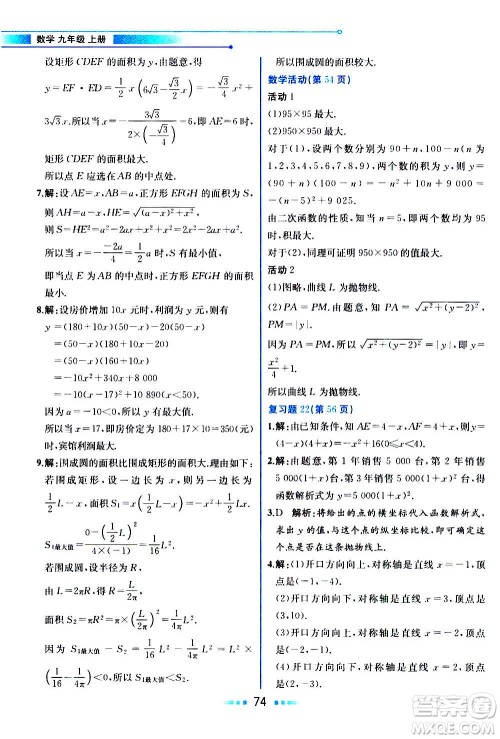 数学 九年级 上册
设矩形 CDEF 的面积为 y，由题意，得
y = EF · ED = \frac{1}{2}x(6\sqrt{3} - \frac{\sqrt{3}}{2}x) = -\frac{\sqrt{3}}{4}x² +
3\sqrt{3}x. 所以当 x = -\frac{3\sqrt{3}}{2×(-\frac{\sqrt{3}}{4})} = 6，即 AE = 6 时，
矩形 CDEF 的面积最大.
所以点 E 应选在 AB 的中点处.
7.解：设 AE = x，AB = a，正方形 EFGH 的面积为 S，
则 AH = a - x，HE = \sqrt{(a-x)²+x²}，
则 S = HE² = a² - 2ax + x² + x² = 2x² - 2ax + a².
所以当 x = -\frac{-2a}{4} = \frac{1}{2}a 时，S 有最小值.
即当点 E 为 AB 的中点处时，正方形 EFGH 的面积
最小.
8.解：设房价增加 10x 元时，利润为 y 元，则
y = (180+10x)(50-x) - 20(50-x)
= (180+10x-20)(50-x)
= (160+10x)(50-x)
= -10x² + 340x + 8 000
= -10(x-17)² + 10 890.
因为 a = -10<0，所以当 x = 17 时，y 有最大值.
此时，180+10x = 350，即房价定为 350 元
时，宾馆利润最大.
9.解：围成圆的面积比围成矩形的面积大. 理由如下：
若围成矩形，设一边长为 x，则另一边长为
\frac{1}{2}L - x，面积 S₁ = x(\frac{1}{2}L - x) = -x² + \frac{1}{2}Lx.
S₁最大值 = \frac{0-(\frac{L}{2})²}{4×(-1)} = \frac{1}{16}L².
若围成圆，设半径为 R，
由 L = 2πR，得 R = \frac{L}{2π}，
面积 S₂ = πR² = π(\frac{L}{2π})² = \frac{1}{4π}L².
因为 S₁最大值 - S₂ = \frac{1}{16}L² - \frac{1}{4π}L² =
(\frac{1}{16} - \frac{1}{4π})L² < 0，所以 S₁最大值 < S₂.
所以围成圆的面积较大.
数学活动(第 54 页)
活动 1
(1)95×95 最大.
(2)950×950 最大.
对于(1)，设两个数分别为 90+n，100-n(n 为
1,2,3,4,5,6,7,8,9)，两个数的积为 y，则 y =
(90+n)(100-n) = -n² + 10n + 9 000，
由二次函数的性质，知当 n = 5，即两个数为 95
时，y 的值最大.
对于(2)，同理可证明 950×950 的值最大.
活动 2
(1)图略，猜想曲线 L 为抛物线.
(2)PA = PM. 由题意，可知 PA = \sqrt{x²+(y-2)²}，
PM = |y|.
因为 PA = PM，所以 \sqrt{x²+(y-2)²} = |y|，即 y =
\frac{x²}{4} + 1.
所以曲线 L 为抛物线.
复习题 22(第 56 页)
1.解：由条件，可知 AE = 4-x，AF = 4+x，则
y = (4-x)(4+x) = -x²+16(0≤x<4).
2.解：由题意，可知第 1 年销售 5 000 台，第 2 年销售
5 000(1+x)台，第 3 年销售 5 000(1+x)²台，得
函数解析式为 y = 5 000(1+x)².
3.D 解析：将给出的点的横坐标代入函数解析式，
求出 y 的值，再与这个点的纵坐标比较，判断这
个点是否在这条抛物线上.
4.解：(1)开口方向向上，对称轴为直线 x = -1，顶
点是(-1,-3).
(2)开口方向向下，对称轴为直线 x = 3，顶点是
(3,10).
(3)开口方向向上，对称轴为直线 x = -2，顶点
是(-2,-4).
(4)开口方向向下，对称轴为直线 x = 2，顶点
74